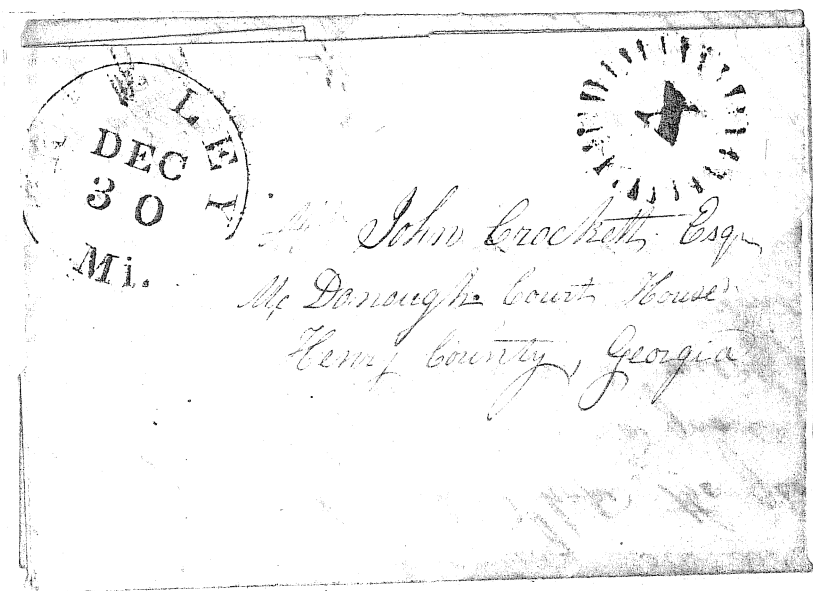 LEY
DEC
30
Mi.
John Crockett, Esqr
Mc Donough Court House
Henry County, Georgia